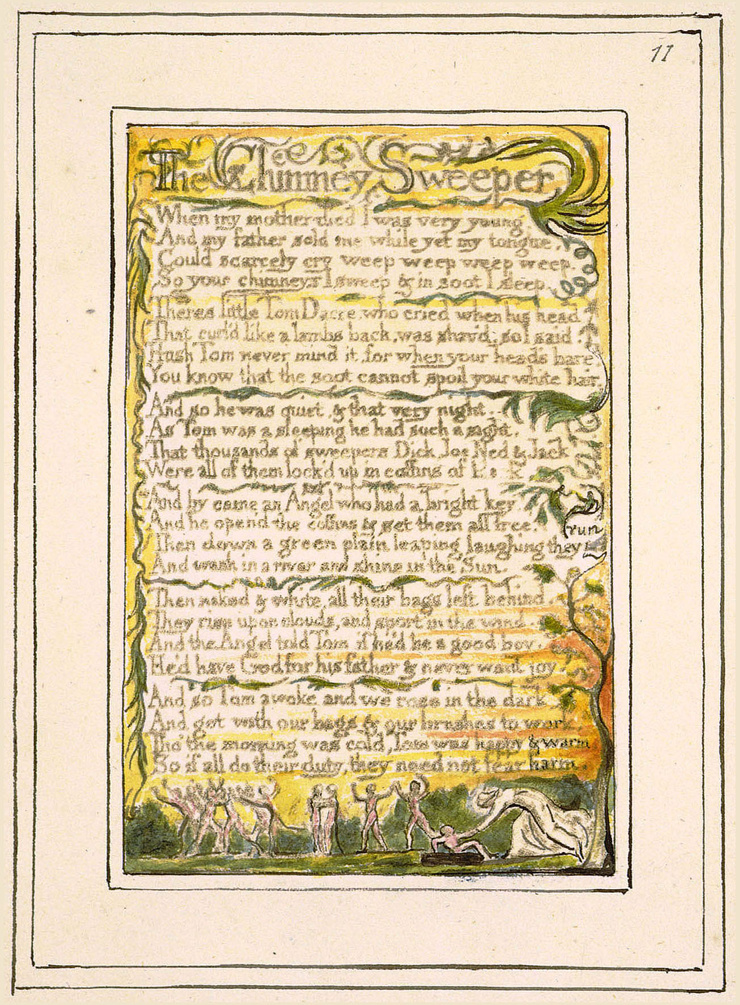 11
The Chimney Sweeper
When my mother died I was very young
And my father sold me while yet my tongue,
Could scarcely cry weep weep weep weep.
So your chimneys I sweep & in soot I sleep.
Theres little Tom Dacre, who cried when his head
That curl'd like a lambs back, was shav'd, so I said.
Hush Tom never mind it, for when your heads bare
You know that the soot cannot spoil your white hair
And so he was quiet, & that very night.
As Tom was a sleeping he had such a sight.
That thousands of sweepers Dick, Joe Ned & Jack
Were all of them lock'd up in coffins of
And by came an Angel who had a bright key
And he open'd the coffins & set them all free.
Then down a green plain leaping laughing they run
And wash in a river and shine in the Sun.
Then naked & white, all their bags left behind.
They rise upon clouds, and sport in the wind.
And the Angel told Tom if he'd be a good boy,
He'd have God for his father & never want joy.
And so Tom awoke and we rose in the dark
And got with our bags & our brushes to work
Tho' the morning was cold, Tom was happy & warm
So if all do their duty, they need not fear harm.